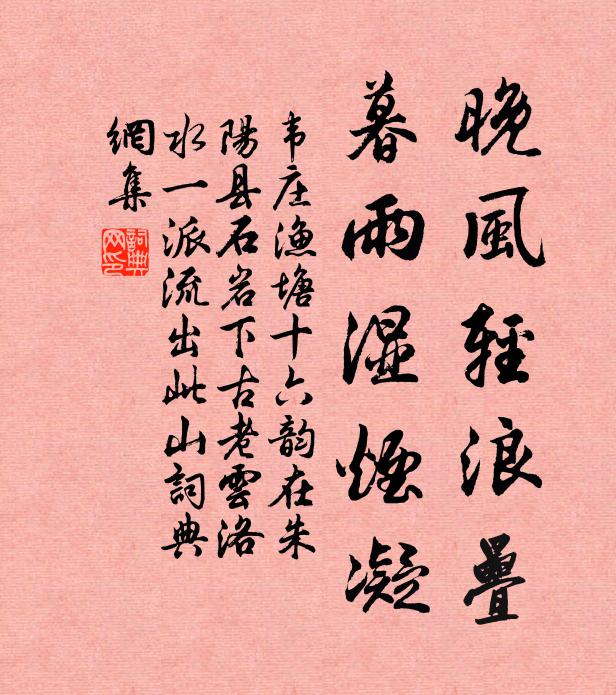 晚風輕浪疊
暮雨湿煙凝
韦庄渔塘十六韵在朱
陽县石岩下古老雲洛
水一派流出此山詞典
網集
詞典
网印